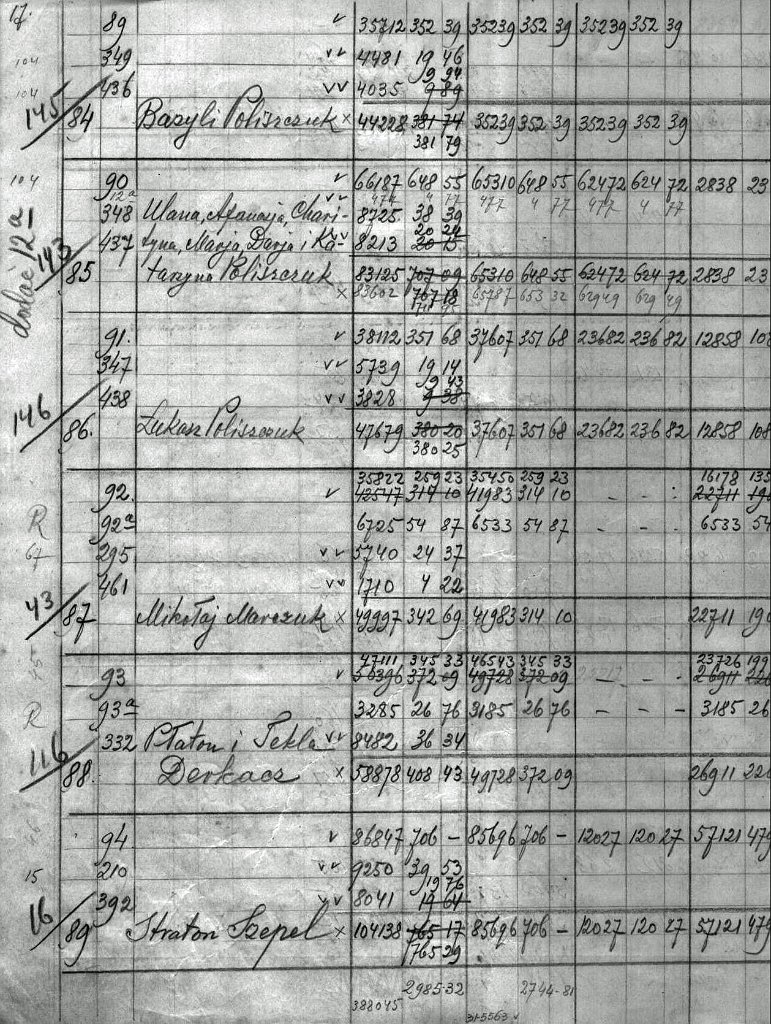 17. 89 v 35712 352 39 35239 352 39 35239 352 39
104 349 vv 4481 19 46
9 94
104 436 vv 4035 9 89
145 84 Bazyli Poliszczuk x 44228 381 74 35239 352 39 35239 352 39
381 79
104 90 v 66187 648 55 65310 648 55 62472 624 72 2838 23
12a vv 477 4 77 477 4 77 477 4 77
348 Ulana, Afanasja, Chari- 8725 38 39
20 24
437 tyna, Marja, Darja i Ka- 8213 20 15
dodać 12a
143 85 tarzyna Poliszczuk 83125 707 09 65310 648 55 62472 624 72 2838 23
x 83602 707 18 65787 653 32 62949 629 49
91. v 38112 351 68 37607 351 68 23682 236 82 12858 108
347 vv 5739 19 14
9 43
438 vv 3828 9 38
146 86. Łukasz Poliszczuk 47679 380 20 37607 351 68 23682 236 82 12858 108
380 25
35822 259 23 35450 259 23 16178 135
92. v 42547 314 10 41983 314 10 - - - 22711 190
R 92a 6725 54 87 6533 54 87 - - - 6533 54
67 295 vv 5740 24 37
461 vv 1710 4 22
43 87 Mikołaj Marczuk x 49997 342 69 41983 314 10 22711 190
47111 345 33 46543 345 33 23726 199
93 v 50396 372 09 49728 372 09 - - - 26911 226
R 93a 3285 26 76 3185 26 76 - - - 3185 26
332 Płaton i Tekla vv 8482 36 34
116 88. Derkacz x 58878 408 43 49728 372 09 26911 226
94 v 86847 706 - 85696 706 - 12027 120 27 57121 479
15 210 vv 9250 39 53
19 76
392 vv 8041 19 64
16 89 Straton Szepel x 104138 765 17 85696 706 - 12027 120 27 57121 479
765 29
2985.32 2744-81
388045